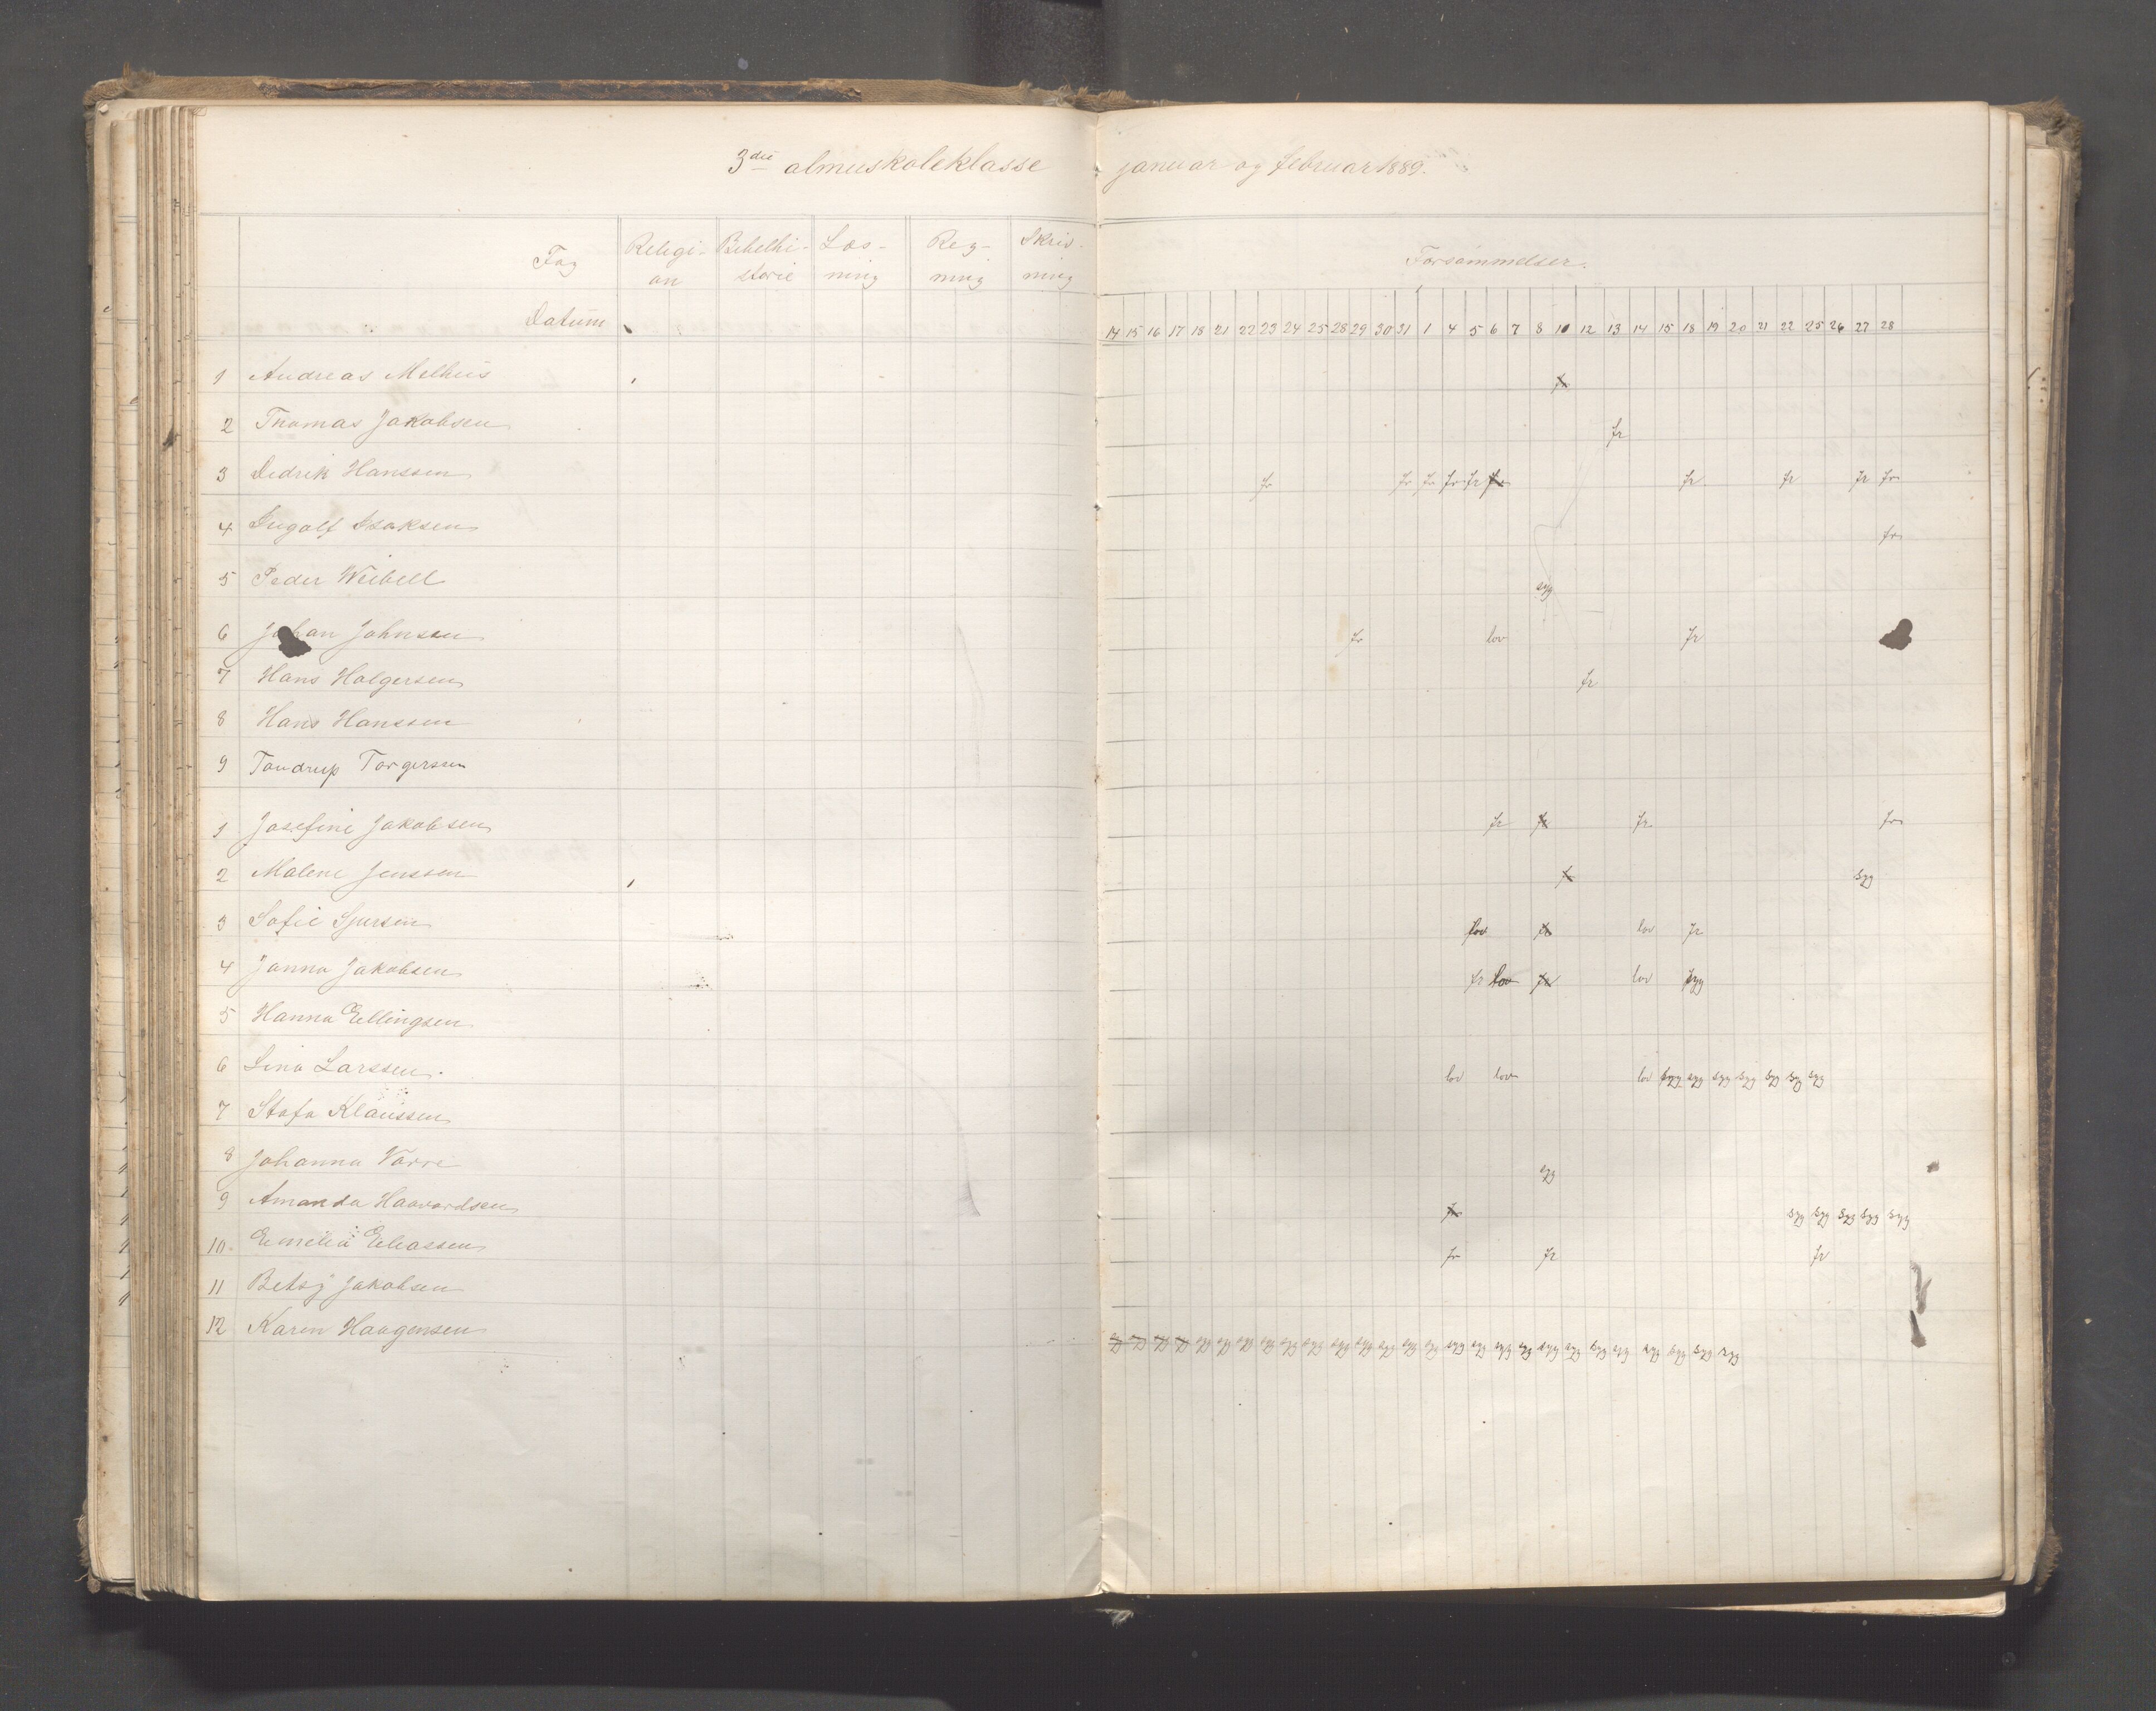 3die almuskoleklasse januar og februar 1889.
Fag Religi- Bibelhi- Læs- Reg- Skriv-
on storie ning ning ning Forsømmelser.
Datum 14 15 16 17 18 21 22 23 24 25 28 29 30 31 1 4 5 6 7 8 10 12 13 14 15 18 19 20 21 22 25 26 27 28
1 Andreas Melhus fr
2 Thomas Jakobsen fr
3 Didrik Hanssen fr fr fr fr fr fr fr fr fr fr
4 Ingolf Isaksen fr
5 Peder Weibell syg
6 Johan Johnsen fr lov fr
7 Hans Holgersen fr
8 Hans Hanssen
9 Tandrup Torgersen
1 Josefine Jakobsen fr fr fr fr
2 Malene Jenssen fr syg
3 Sofie Sjursen lov fr lov fr
4 Janna Jakobsen fr lov fr lov syg
5 Hanna Ellingsen
6 Lina Larssen. lov lov lov syg syg syg syg syg syg syg
7 Stafa Klaussen
8 Johanna Varre syg
9 Amanda Haavardsen fr syg syg syg syg syg
10. Emelia Eliassen fr fr fr
11 Betsj Jakobsen
12 Karen Haagensen syg syg syg syg syg syg syg syg syg syg syg syg syg syg syg syg syg syg syg syg syg syg syg syg syg syg syg